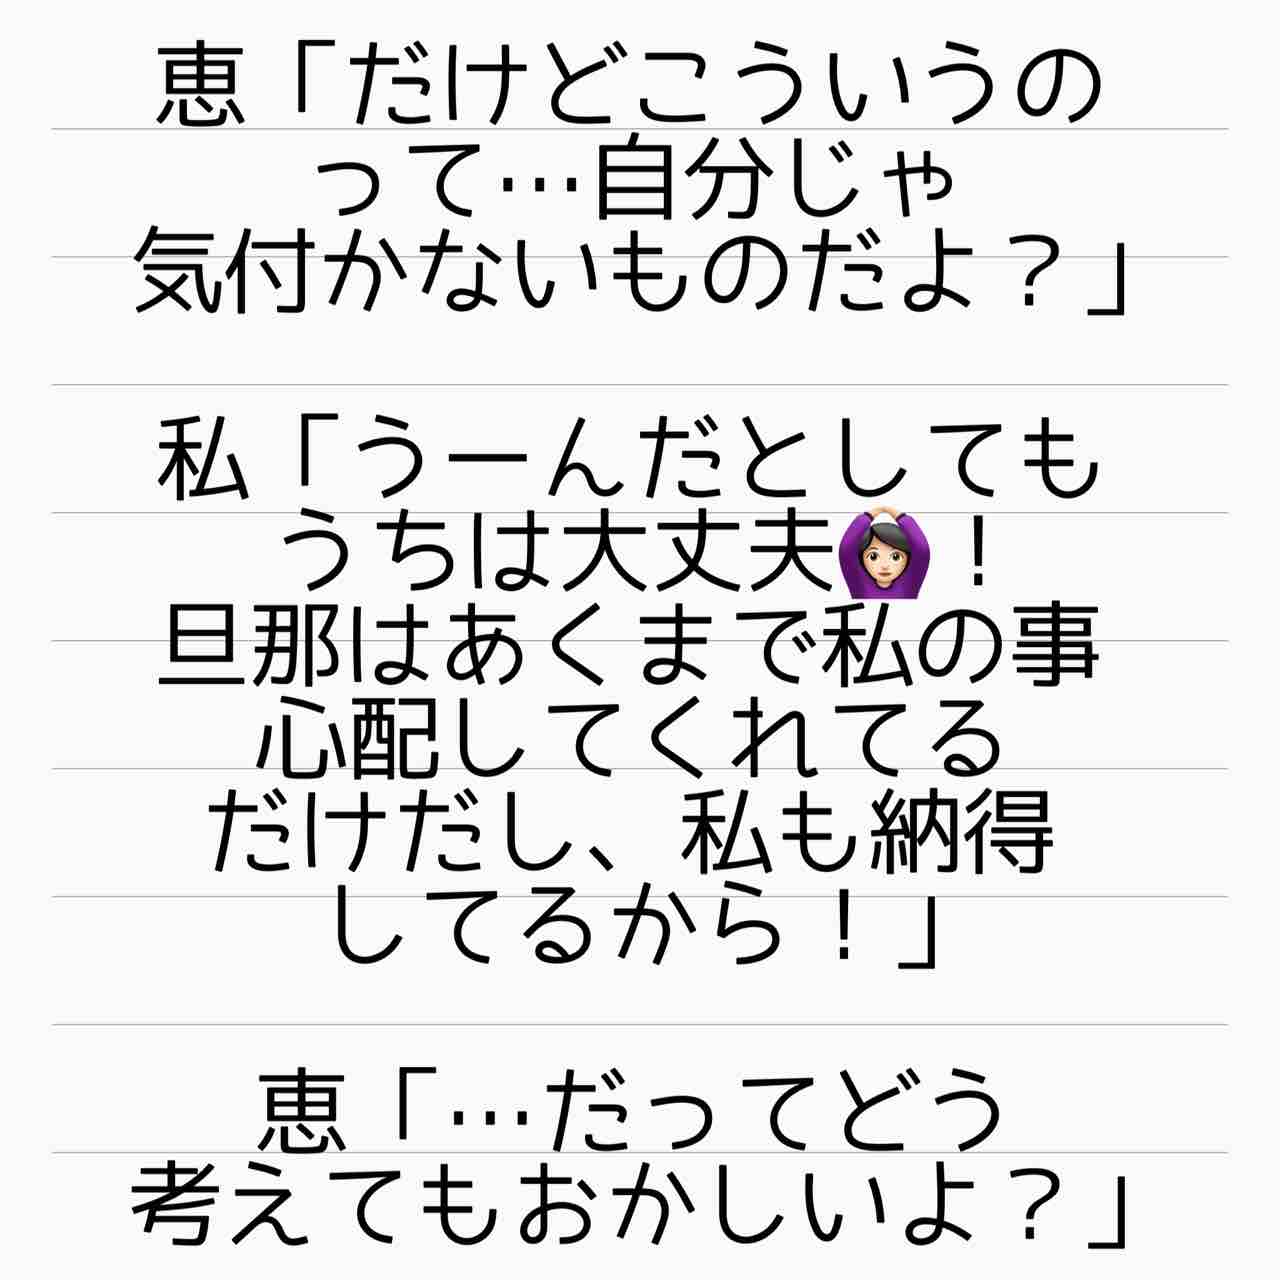 恵「だけどこういうの
って…自分じゃ
気付かないものだよ？」
私「うーんだとしても
うちは大丈夫🙆🏻‍♀️！
旦那はあくまで私の事
心配してくれてる
だけだし、私も納得
してるから！」
恵「…だってどう
考えてもおかしいよ？」